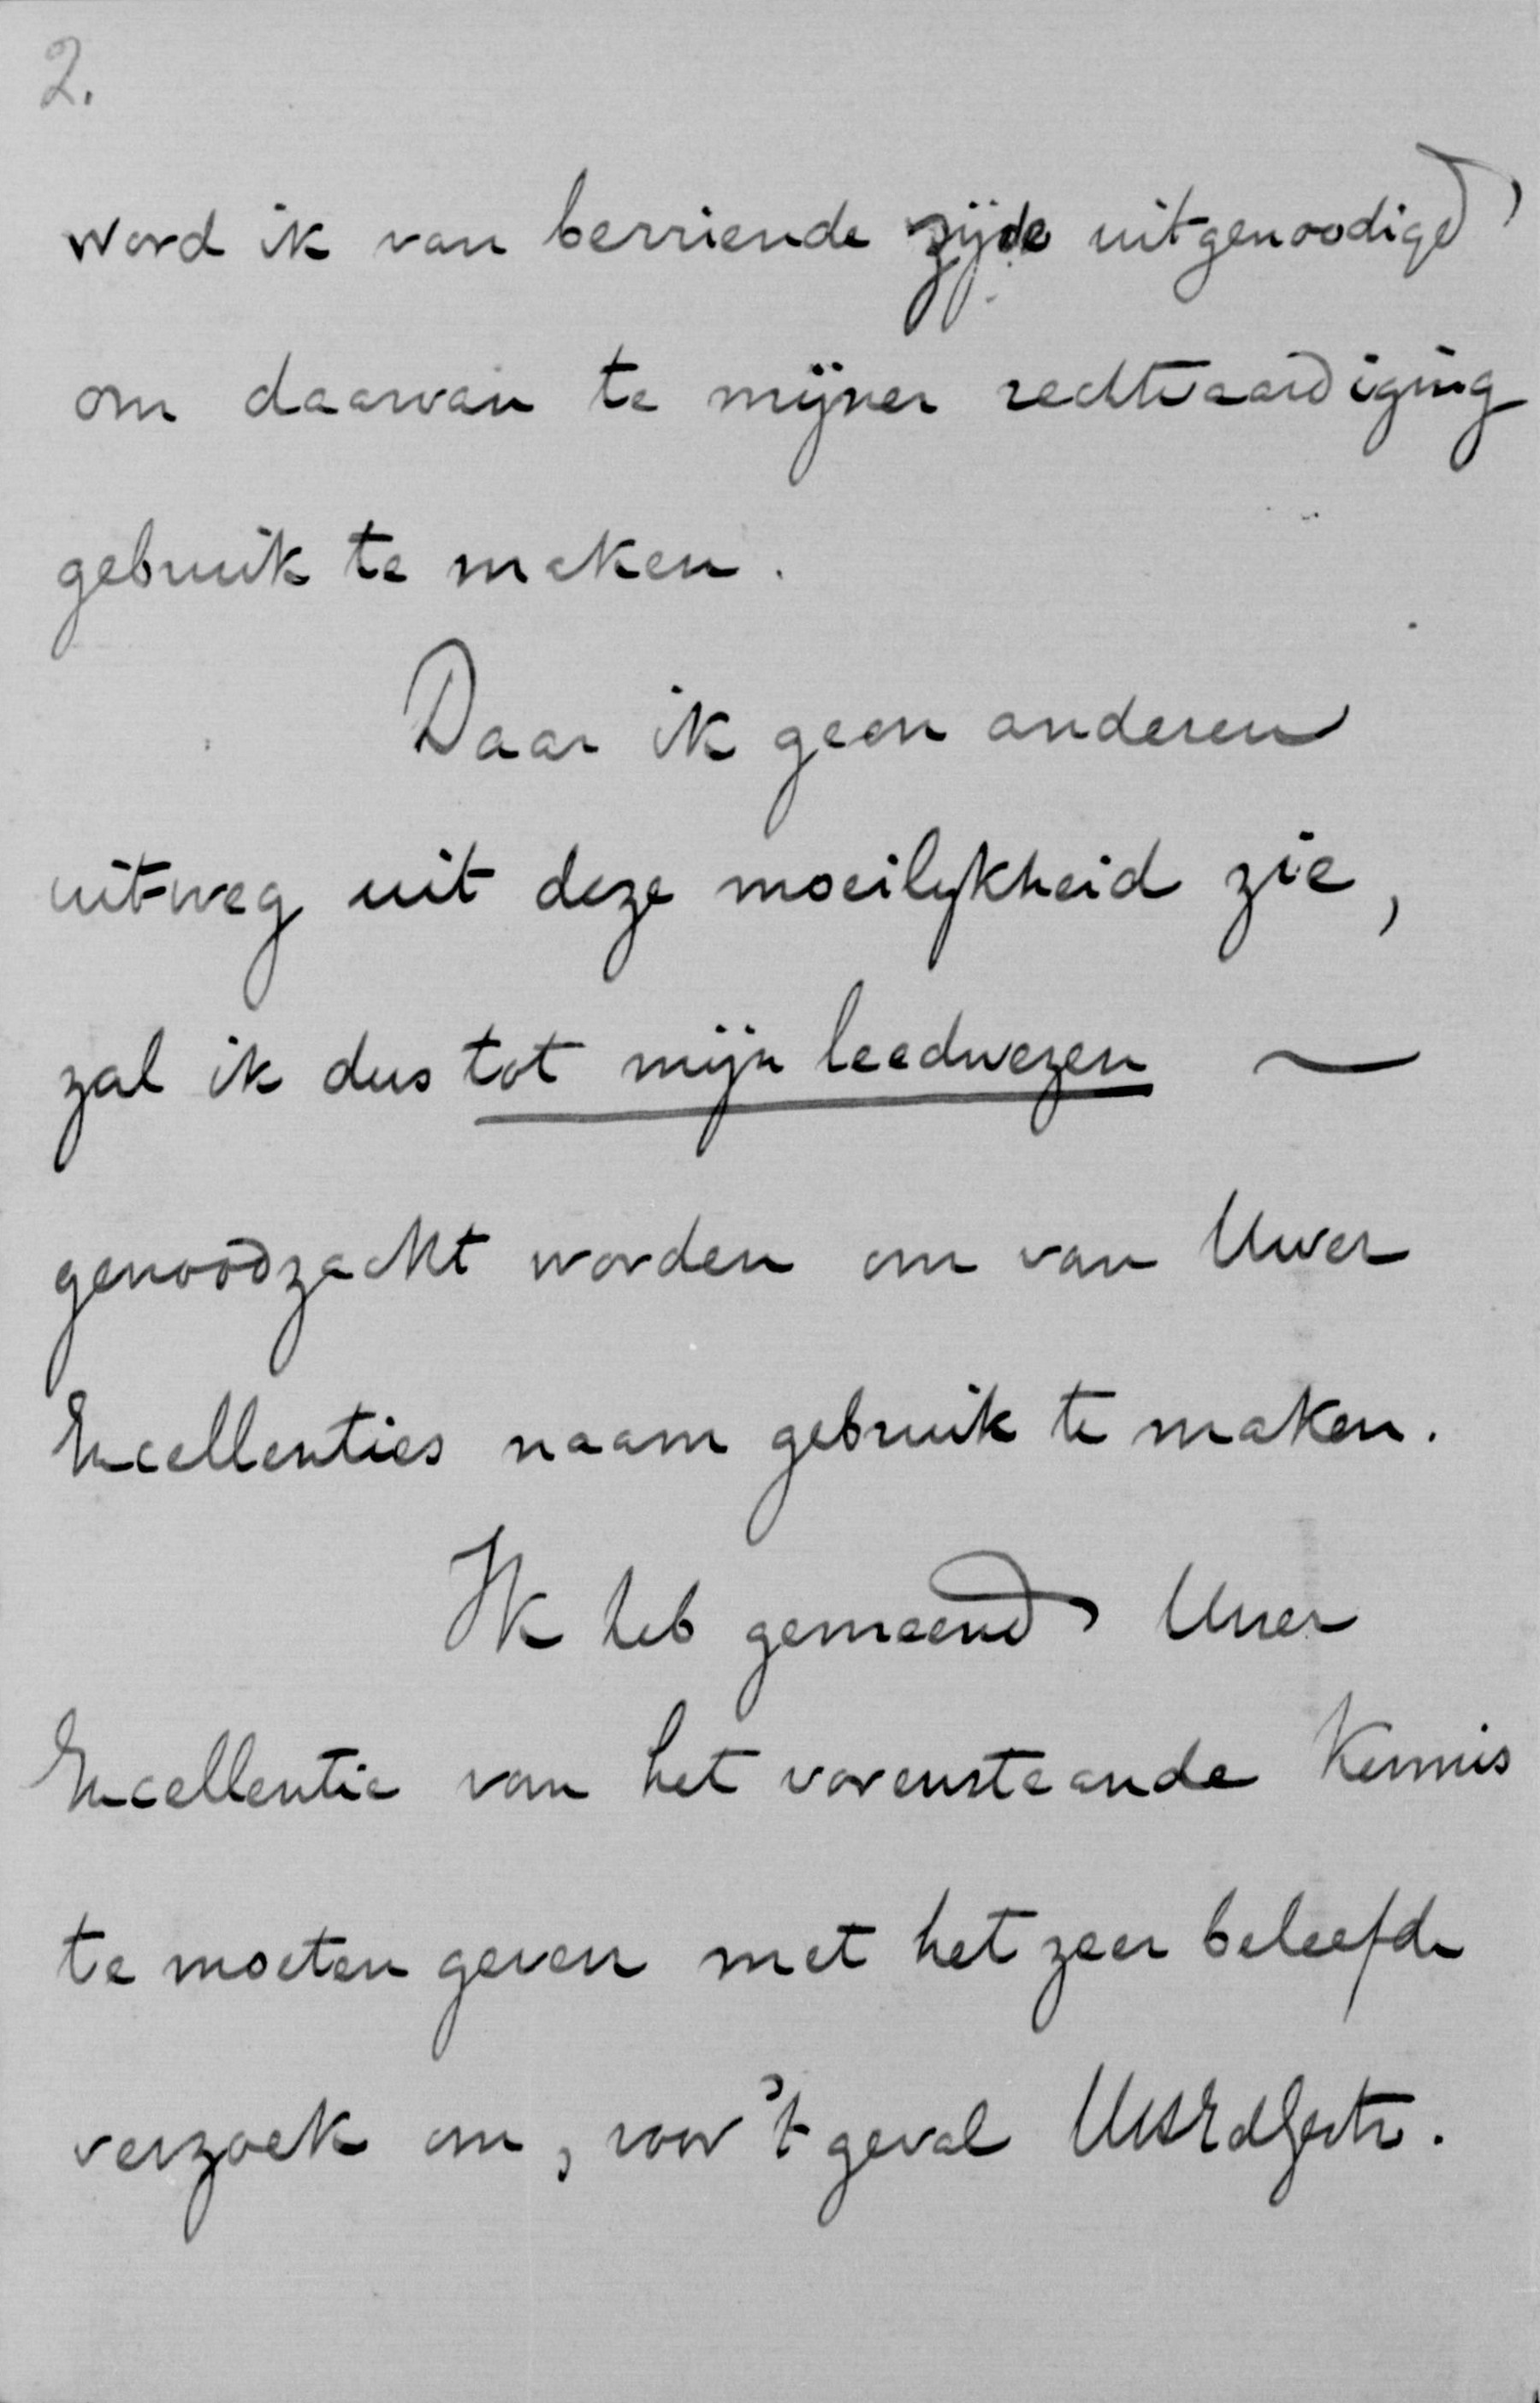 2.
word ik van bevriende zijde uitgenoodigd
om daarvan te mijner rechtvaardiging
gebruik te maken.
Daar ik geen anderen
uitweg uit deze moeilijkheid zie,
zal ik dus tot mijn leedwezen —
genoodzaakt worden om van Uwer
Excellenties naam gebruik te maken.
Ik heb gemeend Uwer
Excellentie van het vorenstaande Kennis
te moeten geven met het zeer beleefde
verzoek om, voor 't geval UHEdGestr.